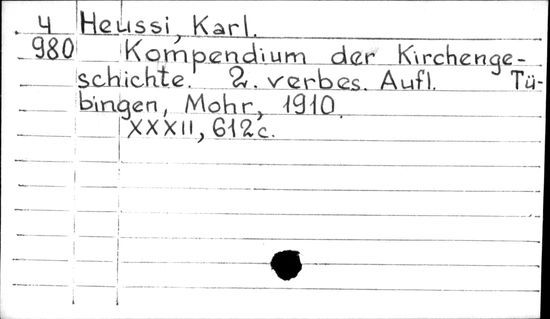 4 Heussi, Karl.
980 Kompendium der Kirchenge-
schichte. 2. verbes. Aufl. Tü-
bingen, Mohr, 1910.
XXXII, 612 c.